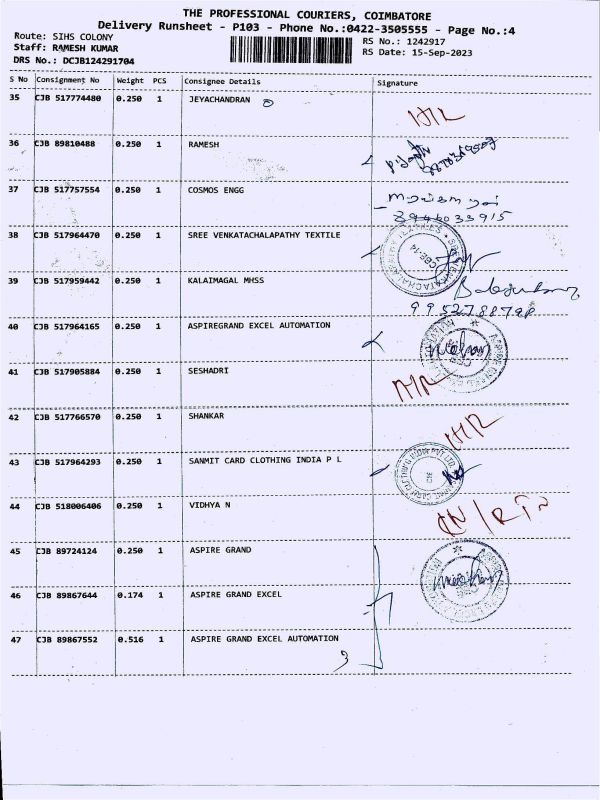 THE PROFESSIONAL COURIERS, COIMBATORE
Delivery Runsheet - P103 - Phone No.:0422-3505555 - Page No.:4
Route: SIHS COLONY
Staff: RAMESH KUMAR
DRS No.: DCJB124291704
RS No.: 1242917
RS Date: 15-Sep-2023
S No Consignment No Weight PCS Consignee Details Signature
35 CJB 517774480 0.250 1 JEYACHANDRAN
36 CJB 89810488 0.250 1 RAMESH
37 CJB 517757554 0.250 1 COSMOS ENGG
38 CJB 517964470 0.250 1 SREE VENKATACHALAPATHY TEXTILE
39 CJB 517959442 0.250 1 KALAIMAGAL MHSS
40 CJB 517964165 0.250 1 ASPIREGRAND EXCEL AUTOMATION
41 CJB 517905884 0.250 1 SESHADRI
42 CJB 517766570 0.250 1 SHANKAR
43 CJB 517964293 0.250 1 SANMIT CARD CLOTHING INDIA P L
44 CJB 518006406 0.250 1 VIDHYA N
45 CJB 89724124 0.250 1 ASPIRE GRAND
46 CJB 89867644 0.174 1 ASPIRE GRAND EXCEL
47 CJB 89867552 0.516 1 ASPIRE GRAND EXCEL AUTOMATION